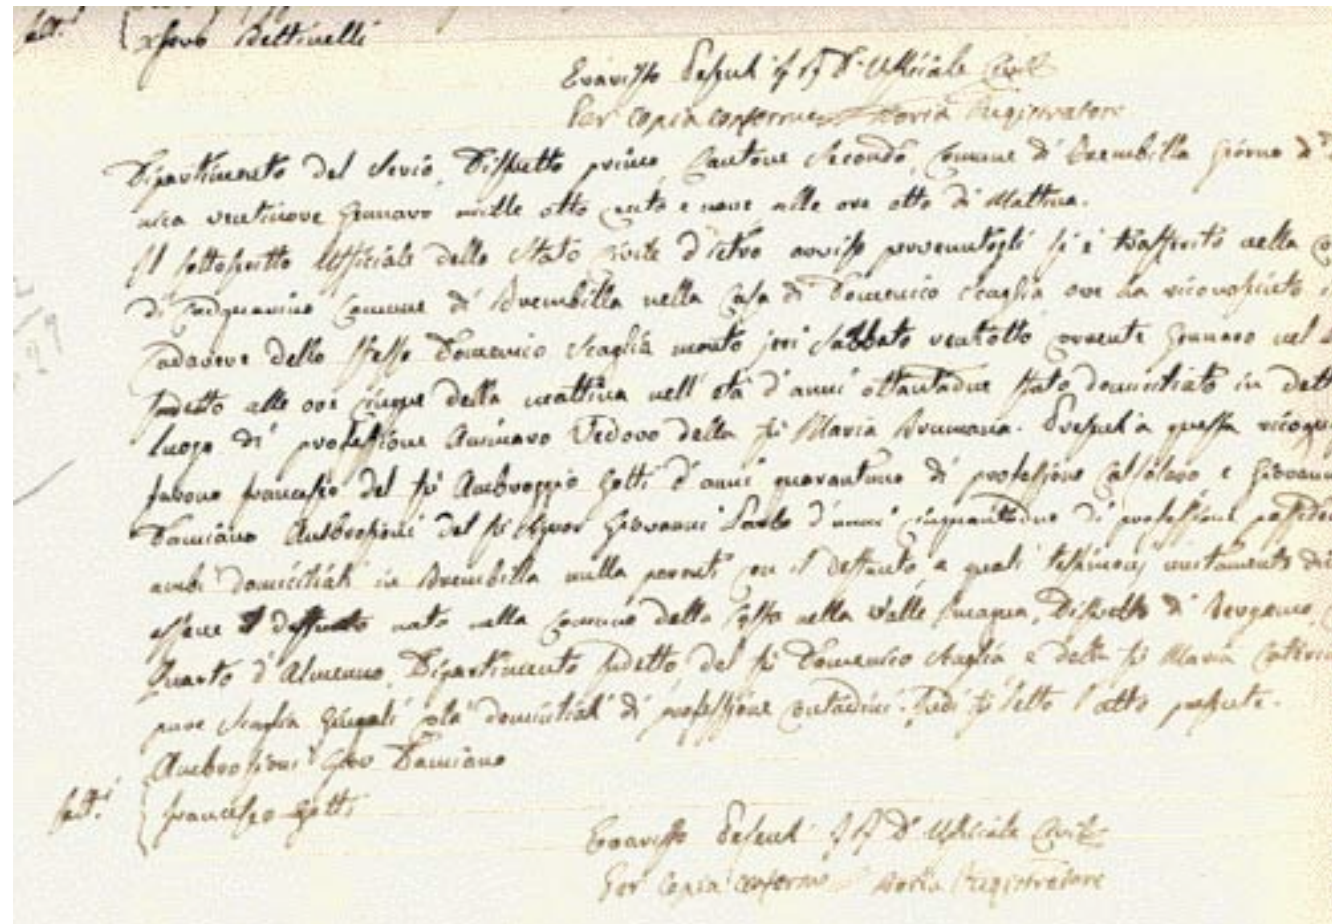 Bettinelli
Ufficiale Civile
Per copia conforme Registratore
Dipartimento del Serio, Distretto primo, Cantone Secondo, Comune di Brembilla Giorno di
nica ventinove Gennaro mille otto cento e nove alle ore otto di Mattina.
Il sottoscritto Ufficiale dello Stato Civile dietro avviso pervenutogli si è trasferito nella
di Comune di Brembilla nella Casa di Domenico Scaglia ove ha riconosciuto
Cadavere dello stesso Domenico Scaglia morto jeri Sabbato ventotto corrente Gennaro nel
sudetto alle ore cinque della mattina nell' età d'anni ottantadue stato domiciliato in dett
luogo di professione Vedovo della fù Maria Brumana. a questa
furono Francesco del fù Ambroggio Gotti d'anni quarantuno di professione Calsolaro e Giovann
Damiano Ambrosioni del fù Signor Giovanni d'anni cinquantadue di professione posside
ambi domiciliati in Brembilla nulla parenti con il deffunto, e quali testimonj unitamente
essere il deffunto nato nella Comune della nella Valle Imagna, Distretto di Bergamo,
Quarto d'Almenno, Dipartimento sudetto, del fù Domenico Scaglia e della fù Maria Catteri
pure Scaglia Giugali colà domiciliati di professione contadini. Indi fù letto l'atto presente.
Ambrosioni Gio: Damiano
Francesco Gotti
Ufficiale Civile
Per Copia conforme Registratore